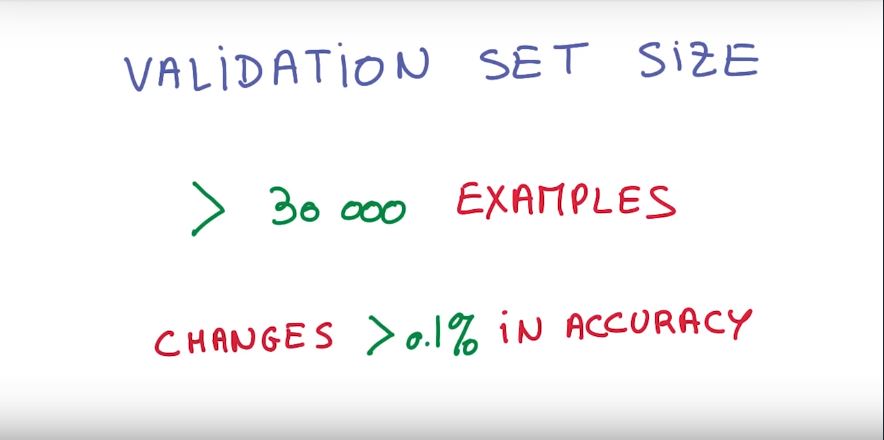 VALiDATiON SET SiZE
> 30 000 EXAMPLES
CHANGES >0.1% iN ACCURACY